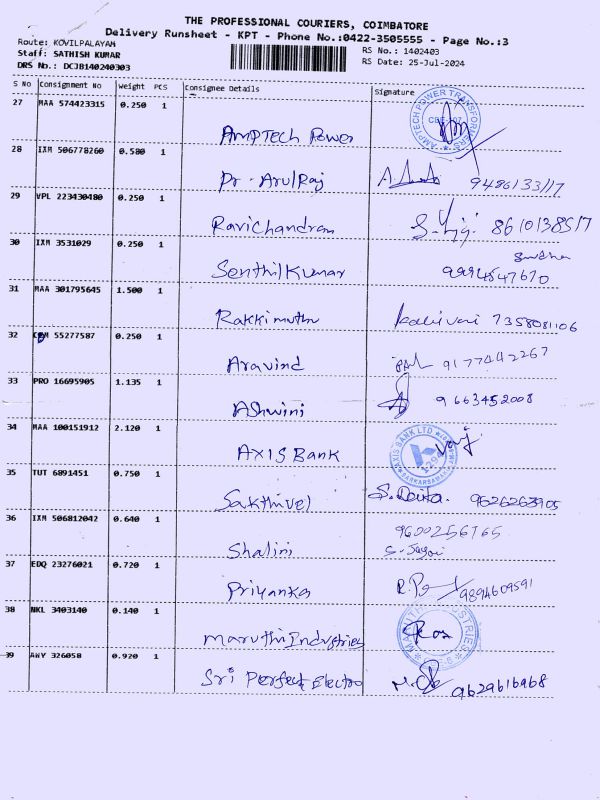 THE PROFESSIONAL COURIERS, COIMBATORE
Delivery Runsheet - KPT - Phone No.:0422-3505555 - Page No.:3
Route: KOVILPALAYAM RS No.: 1402403
Staff: SATHISH KUMAR RS Date: 25-Jul-2024
DRS No.: DCJB140240303
S No Consignment No Weight PCS Consignee Details Signature
27 MAA 574423315 0.250 1
AMPTECH POWER TRANSFORMERS
AMPTECH Power
28 IXM 506778260 0.580 1
Dr. ArulRaj
29 VPL 223430480 0.250 1
Ravichandran 8610138517
30 IXM 3531029 0.250 1 Sudha
SenthilKumar 9994547670
31 MAA 301795645 1.500 1
Rakkimuthu 7358081106
32 55277587 0.250 1
Aravind 9177442267
33 PRO 16695905 1.135 1
Ashwini 9663452008
34 MAA 100151912 2.120 1
AXIS BANK LTD
AXIS Bank
35 TUT 6891451 0.750 1
Sakthivel 9626263905
36 IXM 506812042 0.640 1
Shalini
37 EDQ 23276021 0.720 1
Priyanka 9894609591
38 NKL 3403140 0.140 1
Maruthi Industries
39 AWY 326058 0.920 1
Sri Perfect Electro 9629616968